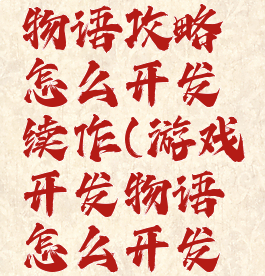 物语攻略
怎么开发
续作(游戏
开发物语
怎么开发